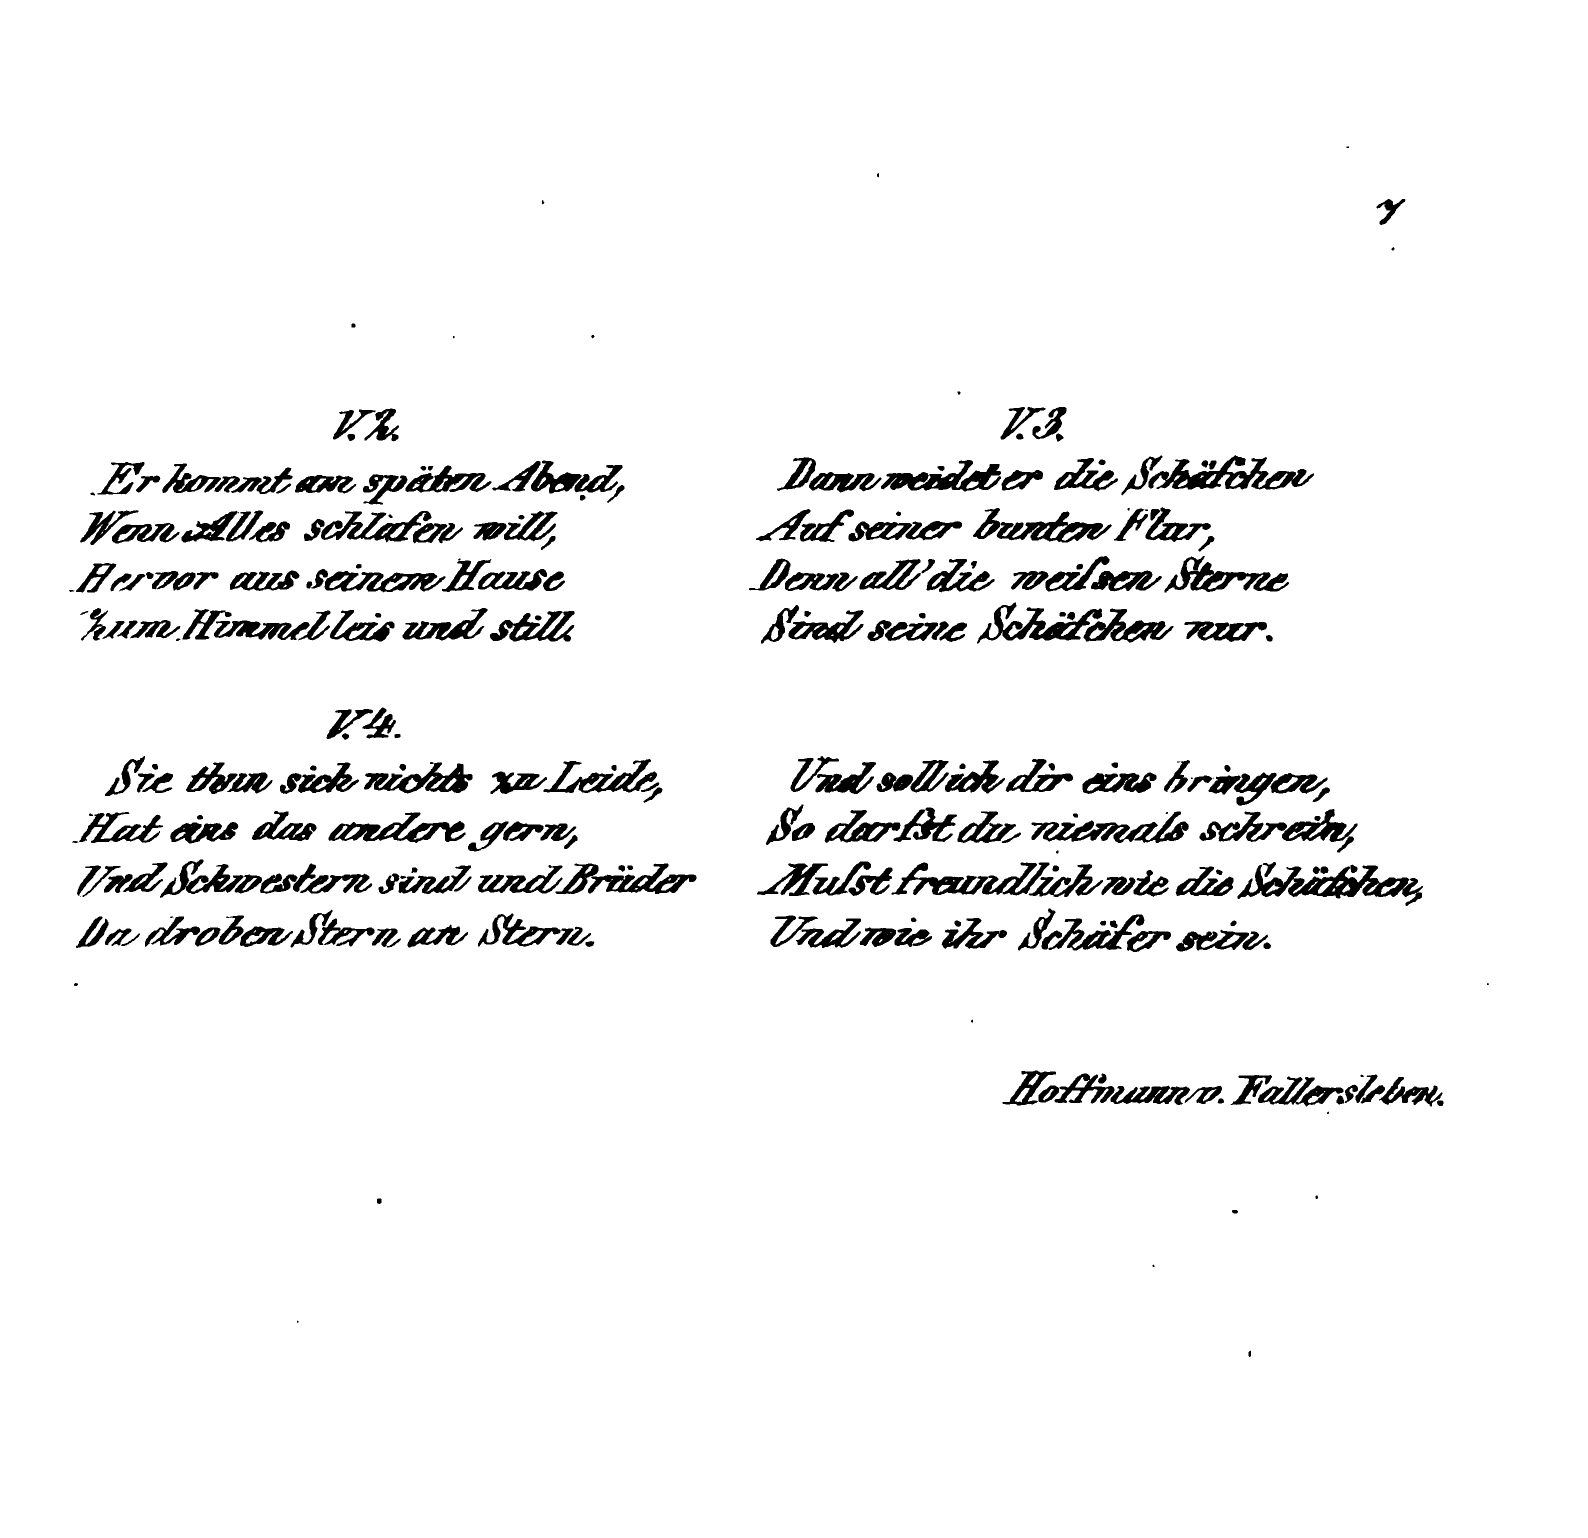 7
V. 2.
Er kommt am späten Abend,
Wenn Alles schlafen will,
Hervor aus seinem Hause
Zum Himmel leis und still.
V. 3.
Dann weidet er die Schäfchen
Auf seiner bunten Flur,
Denn all' die weiſsen Sterne
Sind seine Schäfchen nur.
V. 4.
Sie thun sich nichts zu Leide,
Hat eins das andere gern,
Und Schwestern sind und Brüder
Da droben Stern an Stern.
Und soll ich dir eins bringen,
So darfst du niemals schrein,
Muſst freundlich wie die Schäfchen,
Und wie ihr Schäfer sein.
Hoffmann v. Fallersleben.